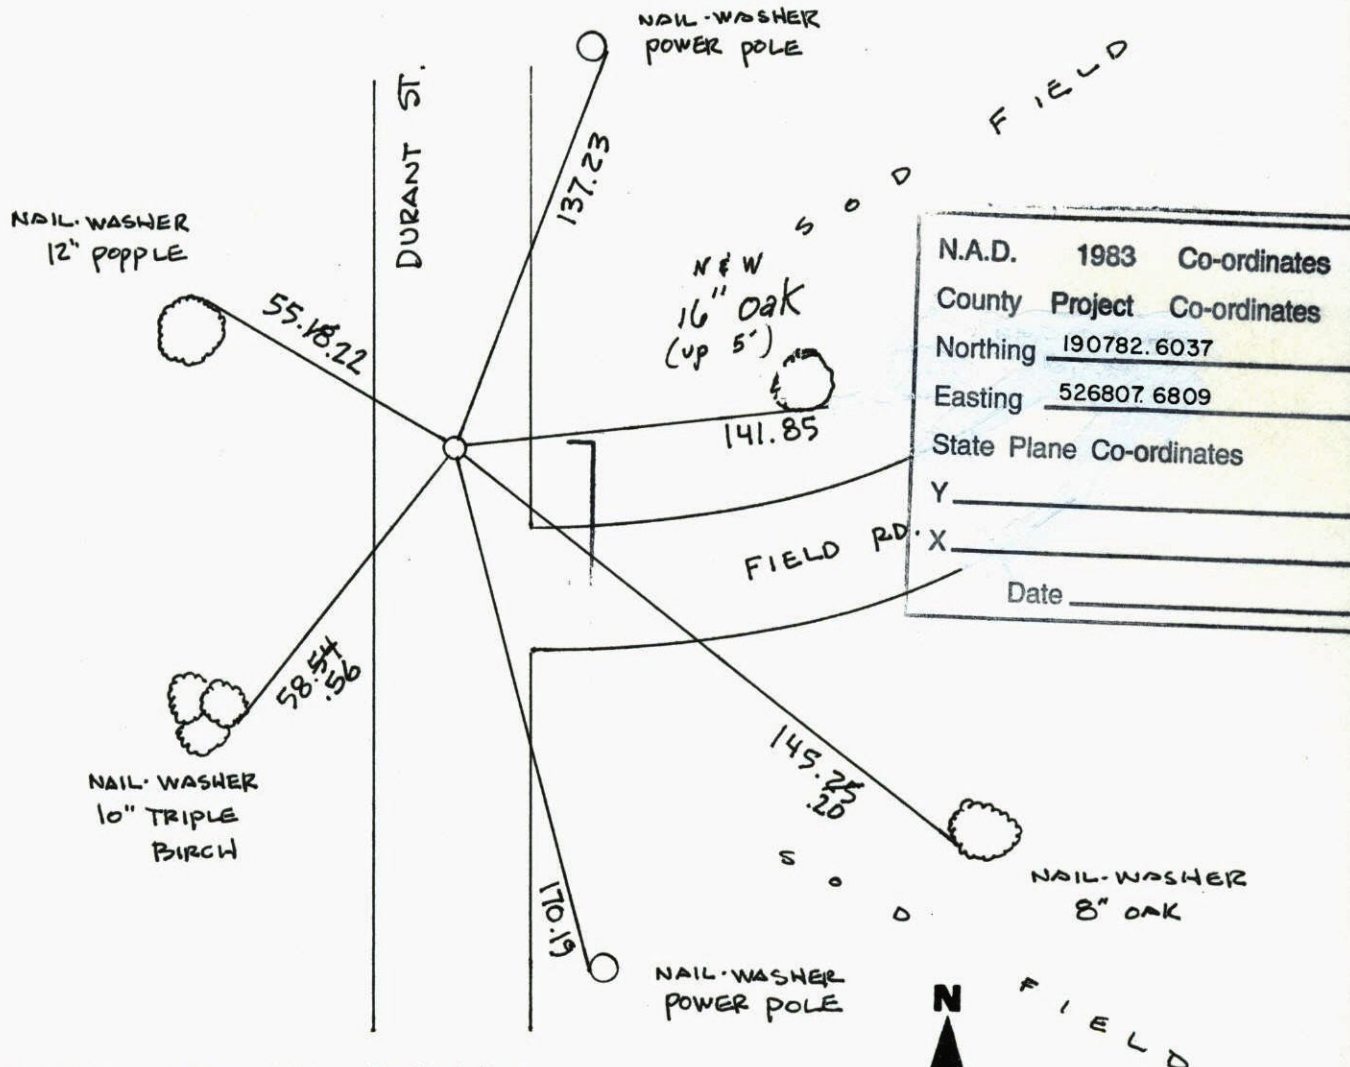 NAIL-WASHER
POWER POLE
DURANT ST.
137.23
SOD FIELD
NAIL-WASHER
12" POPPLE
55.18.22
N & W
16" Oak
(up 5')
141.85
N.A.D. 1983 Co-ordinates
County Project Co-ordinates
Northing 190782.6037
Easting 526807.6809
State Plane Co-ordinates
Y
X
Date
FIELD RD.
58.54
.56
NAIL-WASHER
10" TRIPLE
BIRCH
145.25
.20
NAIL-WASHER
8" OAK
170.19
NAIL-WASHER
POWER POLE
SOD FIELD
N